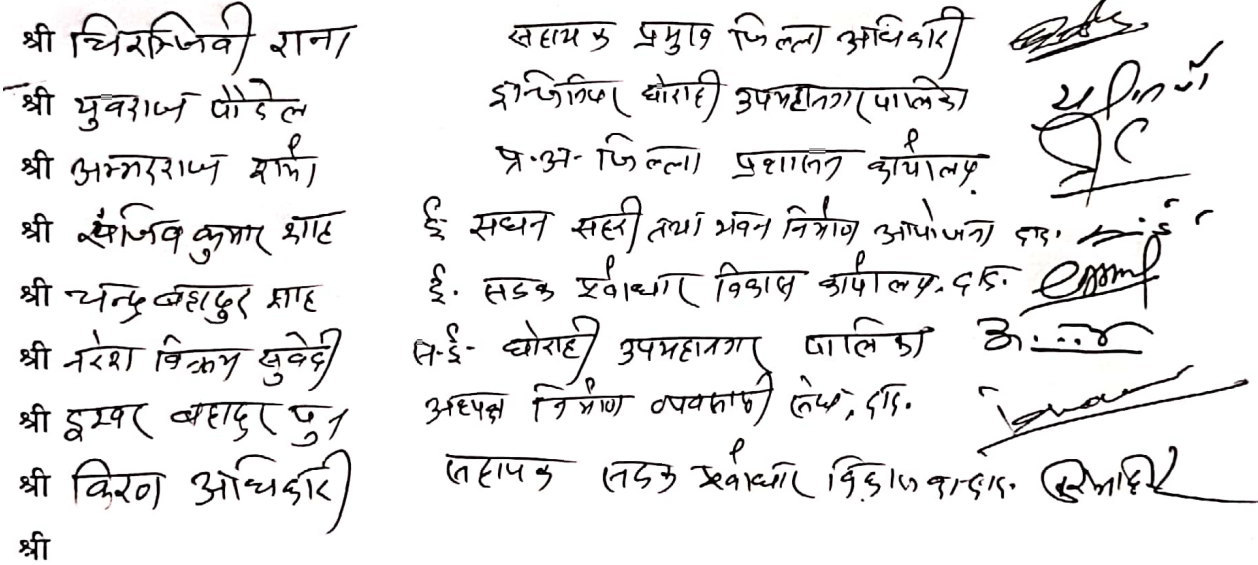 श्री चिरञ्जिवी राना सहायक प्रमुख जिल्ला अधिकारी
श्री युवराज पौडेल इन्जिनियर घोराही उपमहानगरपालिका
श्री अम्मरराज शर्मा प्र.अ. जिल्ला प्रशासन कार्यालय
श्री संजिव कुमार शाह ई. सघन सहरी तथा भवन निर्माण आयोजना दाङ.
श्री चन्द्र बहादुर शाह ई. सडक पूर्वाधार विकास कार्यालय, दाङ.
श्री नरेश विक्रम सुवेदी स.ई. घोराही उपमहानगर पालिका
श्री इश्वर बहादुर पुन अध्यक्ष निर्माण व्यवसायी संघ, दाङ.
श्री किरण अधिकारी सहायक सडक पूर्वाधार विकास का.दाङ.
श्री